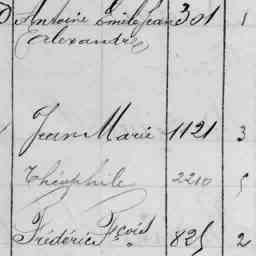 Antoine Emile Jean 301 1
Alexandre
Jean Marie 1121 3
Théophile 2210 5
Frédéric Fçois 825 2